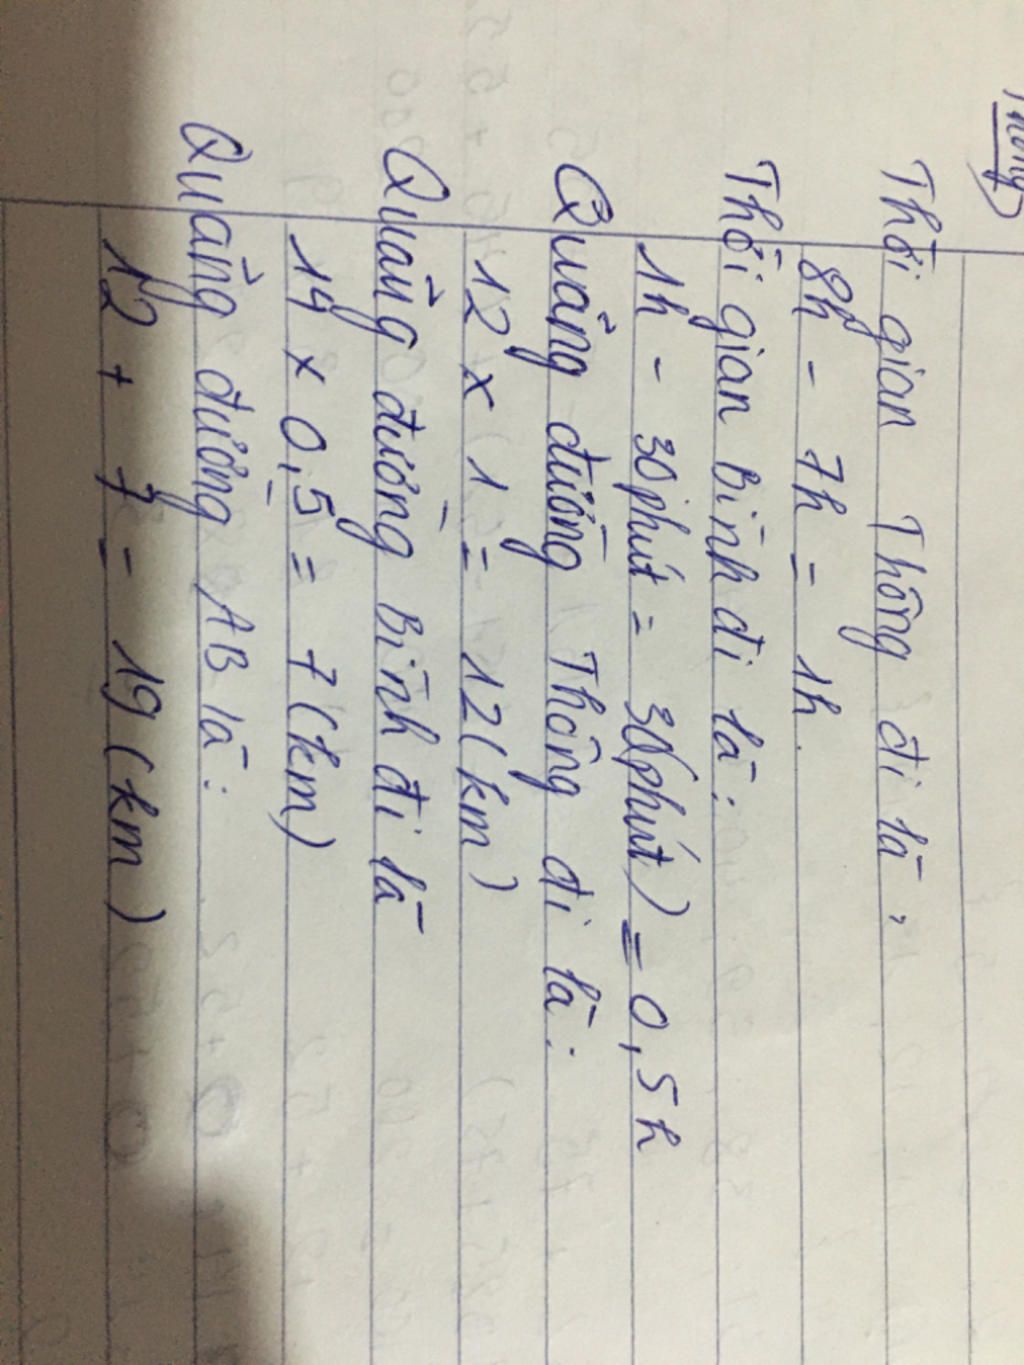 Thông
Thời gian Thông đi là,
8h - 7h = 1h.
Thời gian Bình đi là:
1h - 30phút = 30(phút) = 0,5h
Quãng đường Thông đi là:
12 x 1 = 12(km)
Quãng đường Bình đi là
14 x 0,5 = 7(km)
Quãng đường AB là:
12 + 7 = 19(km)